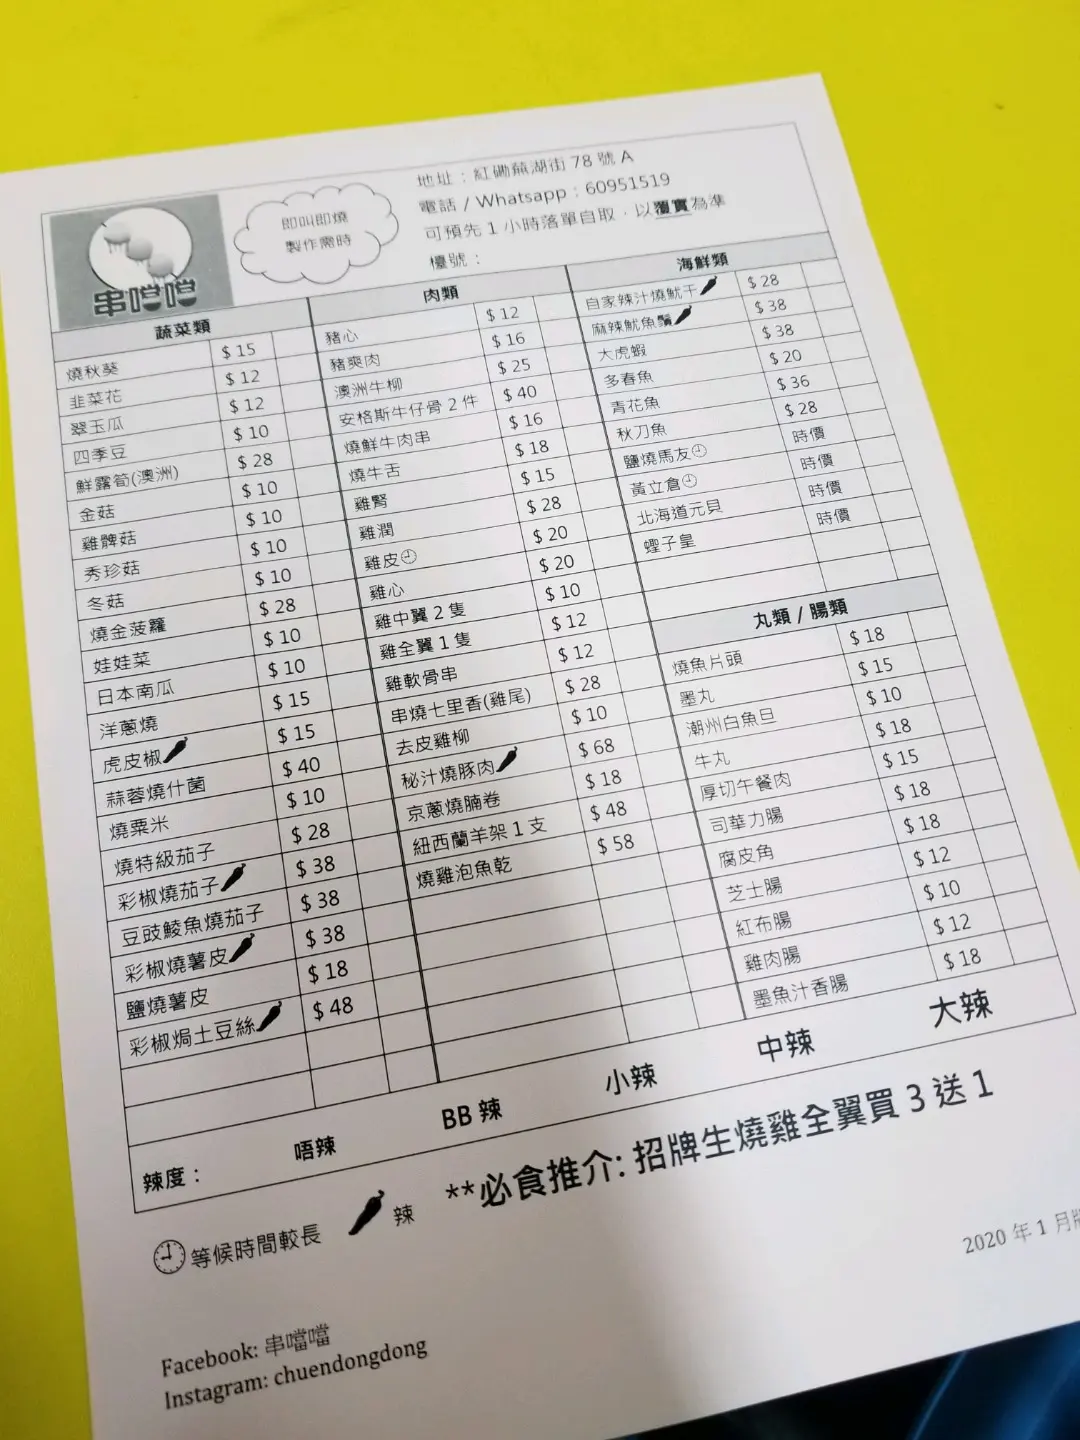 串噹噹
即叫即燒
製作需時
地址：紅磡蕪湖街 78 號 A
電話 / Whatsapp：60951519
可預先 1 小時落單自取，以覆實為準
檯號：
蔬菜類
燒秋葵 $ 15
韭菜花 $ 12
翠玉瓜 $ 12
四季豆 $ 10
鮮露筍(澳洲) $ 28
金菇 $ 10
雞髀菇 $ 10
秀珍菇 $ 10
冬菇 $ 10
燒金菠蘿 $ 28
娃娃菜 $ 10
日本南瓜 $ 10
洋蔥燒 $ 15
虎皮椒 $ 15
蒜蓉燒什菌 $ 40
燒粟米 $ 10
燒特級茄子 $ 28
彩椒燒茄子 $ 38
豆豉鯪魚燒茄子 $ 38
彩椒燒薯皮 $ 38
鹽燒薯皮 $ 18
彩椒焗土豆絲 $ 48
肉類
豬心 $ 12
豬爽肉 $ 16
澳洲牛柳 $ 25
安格斯牛仔骨 2 件 $ 40
燒鮮牛肉串 $ 16
燒牛舌 $ 18
雞腎 $ 15
雞潤 $ 28
雞皮 $ 20
雞心 $ 20
雞中翼 2 隻 $ 10
雞全翼 1 隻 $ 12
雞軟骨串 $ 12
串燒七里香(雞尾) $ 28
去皮雞柳 $ 10
秘汁燒豚肉 $ 68
京蔥燒腩卷 $ 18
紐西蘭羊架 1 支 $ 48
燒雞泡魚乾 $ 58
海鮮類
自家辣汁燒魷干 $ 28
麻辣魷魚鬚 $ 38
大虎蝦 $ 38
多春魚 $ 20
青花魚 $ 36
秋刀魚 $ 28
鹽燒馬友 時價
黃立倉 時價
北海道元貝 時價
蟶子皇 時價
丸類 / 腸類
燒魚片頭 $ 18
墨丸 $ 15
潮州白魚旦 $ 10
牛丸 $ 18
厚切午餐肉 $ 15
司華力腸 $ 18
腐皮角 $ 18
芝士腸 $ 12
紅布腸 $ 10
雞肉腸 $ 12
墨魚汁香腸 $ 18
辣度： 唔辣 BB 辣 小辣 中辣 大辣
等候時間較長 辣
**必食推介: 招牌生燒雞全翼買 3 送 1
2020 年 1 月版
Facebook: 串噹噹
Instagram: chuendongdong